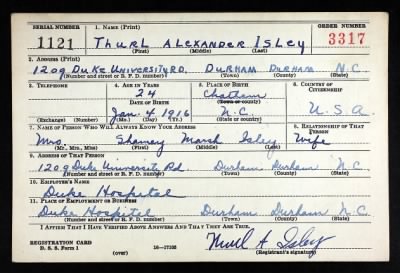 SERIAL NUMBER 1. NAME (Print) ORDER NUMBER
1121 THURL ALEXANDER ISLEY 3317
(First) (Middle) (Last)
2. ADDRESS (Print)
1209 DUKE UNIVERSITY RD. DURHAM DURHAM N.C.
(Number and street or R. F. D. number) (Town) (County) (State)
3. TELEPHONE 4. AGE IN YEARS 5. PLACE OF BIRTH 6. COUNTRY OF CITIZENSHIP
24 Chatham
DATE OF BIRTH (Town or county)
Jan. 4 1916 N.C. U.S.A.
(Exchange) (Number) (Mo.) (Day) (Yr.) (State or country)
7. NAME OF PERSON WHO WILL ALWAYS KNOW YOUR ADDRESS 8. RELATIONSHIP OF THAT PERSON
Mrs. Marsh Isley Wife
(Mr., Mrs., Miss) (First) (Middle) (Last)
9. ADDRESS OF THAT PERSON
1209 Duke University Rd Durham Durham N C
(Number and street or R. F. D. number) (Town) (County) (State)
10. EMPLOYER'S NAME
Duke Hospital
11. PLACE OF EMPLOYMENT OR BUSINESS
Duke Hospital Durham Durham N.C.
(Number and street or R. F. D. number) (Town) (County) (State)
I AFFIRM THAT I HAVE VERIFIED ABOVE ANSWERS AND THAT THEY ARE TRUE.
REGISTRATION CARD Thurl A Isley
D. S. S. Form 1 (over) 16-17105 (Registrant's signature)